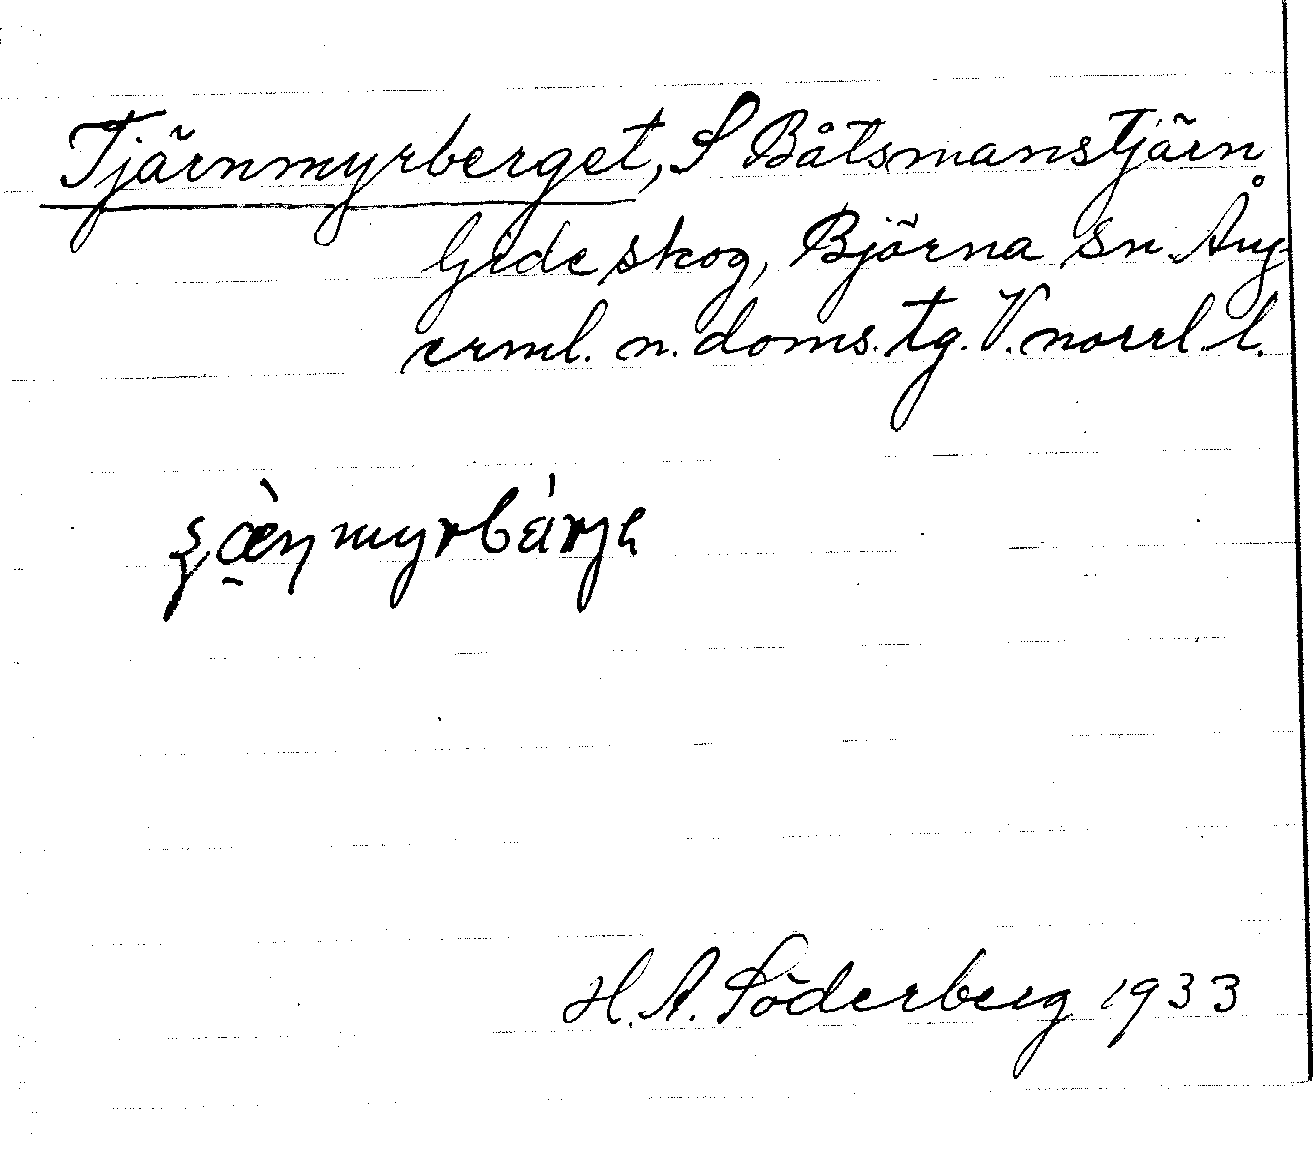 Tjärnmyrberget, S Båtsmanstjärn
Gide skog, Björna sn Ång
erml. n. doms. tg. V. norrl. l.
H. A. Söderberg 1933